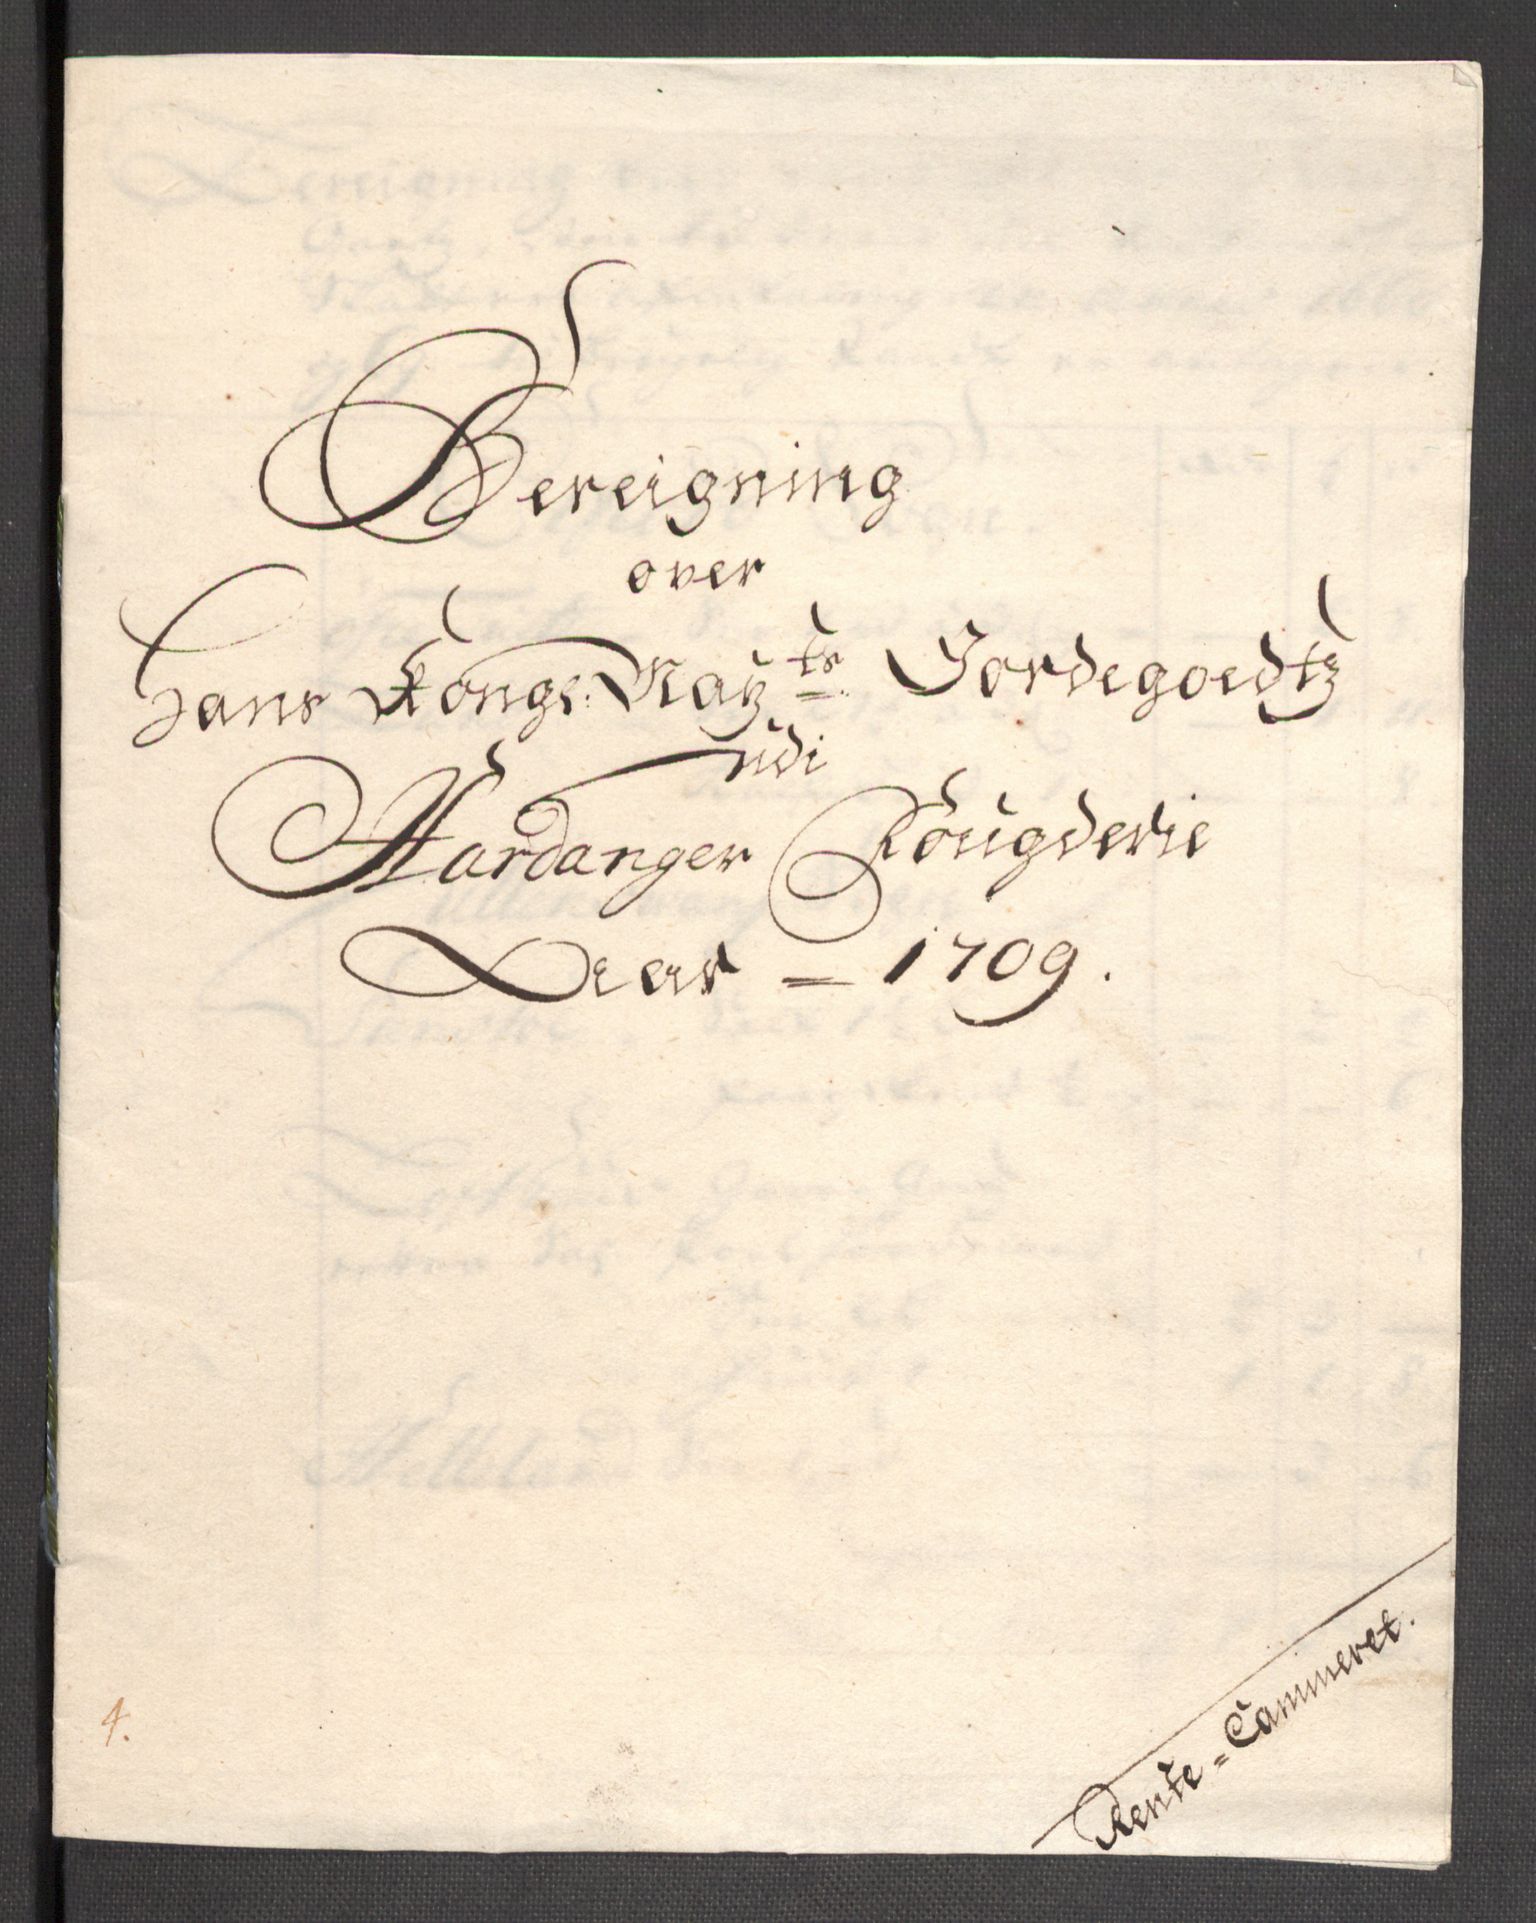 Bereigning
over
Hans Kongl: Maÿ^ts Jordegoedtz
udi
Hardanger Fougderie
Aar = 1709.
Rente = Cammeret.
4.